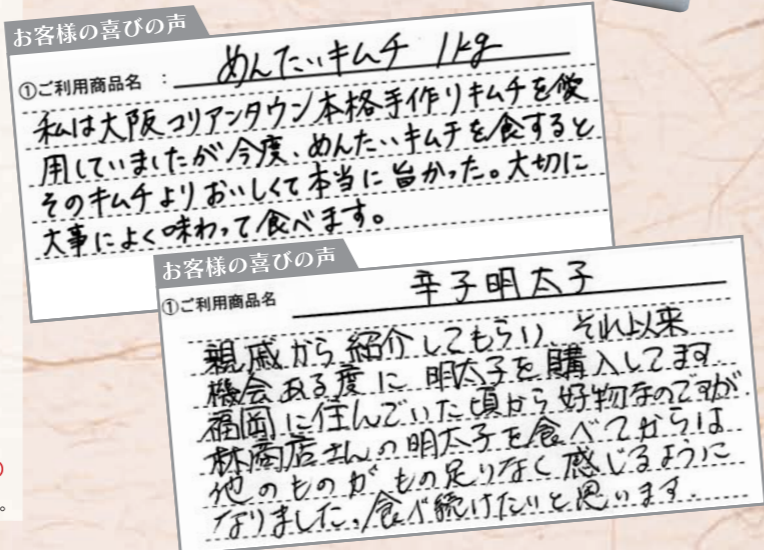 お客様の喜びの声
①ご利用商品名 : めんたいキムチ 1kg
私は大阪コリアンタウン本格手作りキムチを愛
用していましたが今度、めんたいキムチを食すると
そのキムチよりおいしくて本当に旨かった。大切に
大事によく味わって食べます。
お客様の喜びの声
①ご利用商品名 辛子明太子
親戚から紹介してもらい、それ以来
機会ある度に明太子を購入してます
福岡に住んでいた頃から好物なのですが、
林商店さんの明太子を食べてからは
他のものがもの足りなく感じるように
なりました。食べ続けたいと思います。